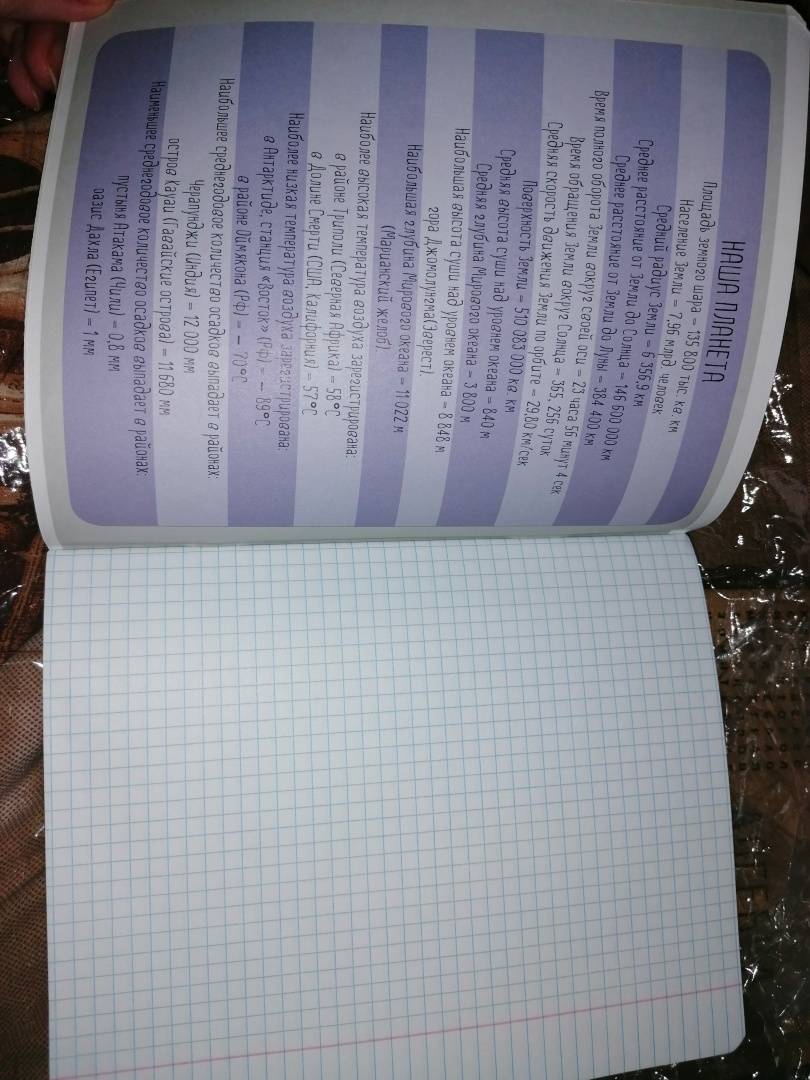 НАША ПЛАНЕТА
Площадь земного шара = 135 800 тыс. кв. км
Население Земли = 7,96 млрд человек
Средний радиус Земли = 6 356,9 км
Среднее расстояние от Земли до Солнца = 146 600 000 км
Среднее расстояние от Земли до Луны = 384 400 км
Время полного оборота Земли вокруг своей оси = 23 часа 56 минут 4 сек
Время обращения Земли вокруг Солнца = 365, 256 суток
Средняя скорость движения Земли по орбите = 29,80 км/сек
Поверхность Земли = 510 083 000 кв. км
Средняя высота суши над уровнем океана = 840 м
Средняя глубина Мирового океана = 3 800 м
Наибольшая высота суши над уровнем океана = 8 848 м
гора Джомолунгма(Эверест).
Наибольшая глубина Мирового океана = 11 022 м
(Марианский желоб)
Наиболее высокая температура воздуха зарегистрирована:
в районе Триполи (Северная Африка) = 58°С
в Долине Смерти (США, Калифорния) = 57°С
Наиболее низкая температура воздуха зарегистрирована:
в Антарктиде, станция «Восток» (РФ) = – 89°С
в районе Оймякона (РФ) = – 70°С
Наибольшее среднегодовое количество осадков выпадает в районах:
Черапунджи (Индия) = 12 000 мм
остров Кауаи (Гавайские острова) = 11 680 мм
Наименьшее среднегодовое количество осадков выпадает в районах:
пустыня Атакама (Чили) = 0,8 мм
оазис Дахла (Египет) = 1 мм